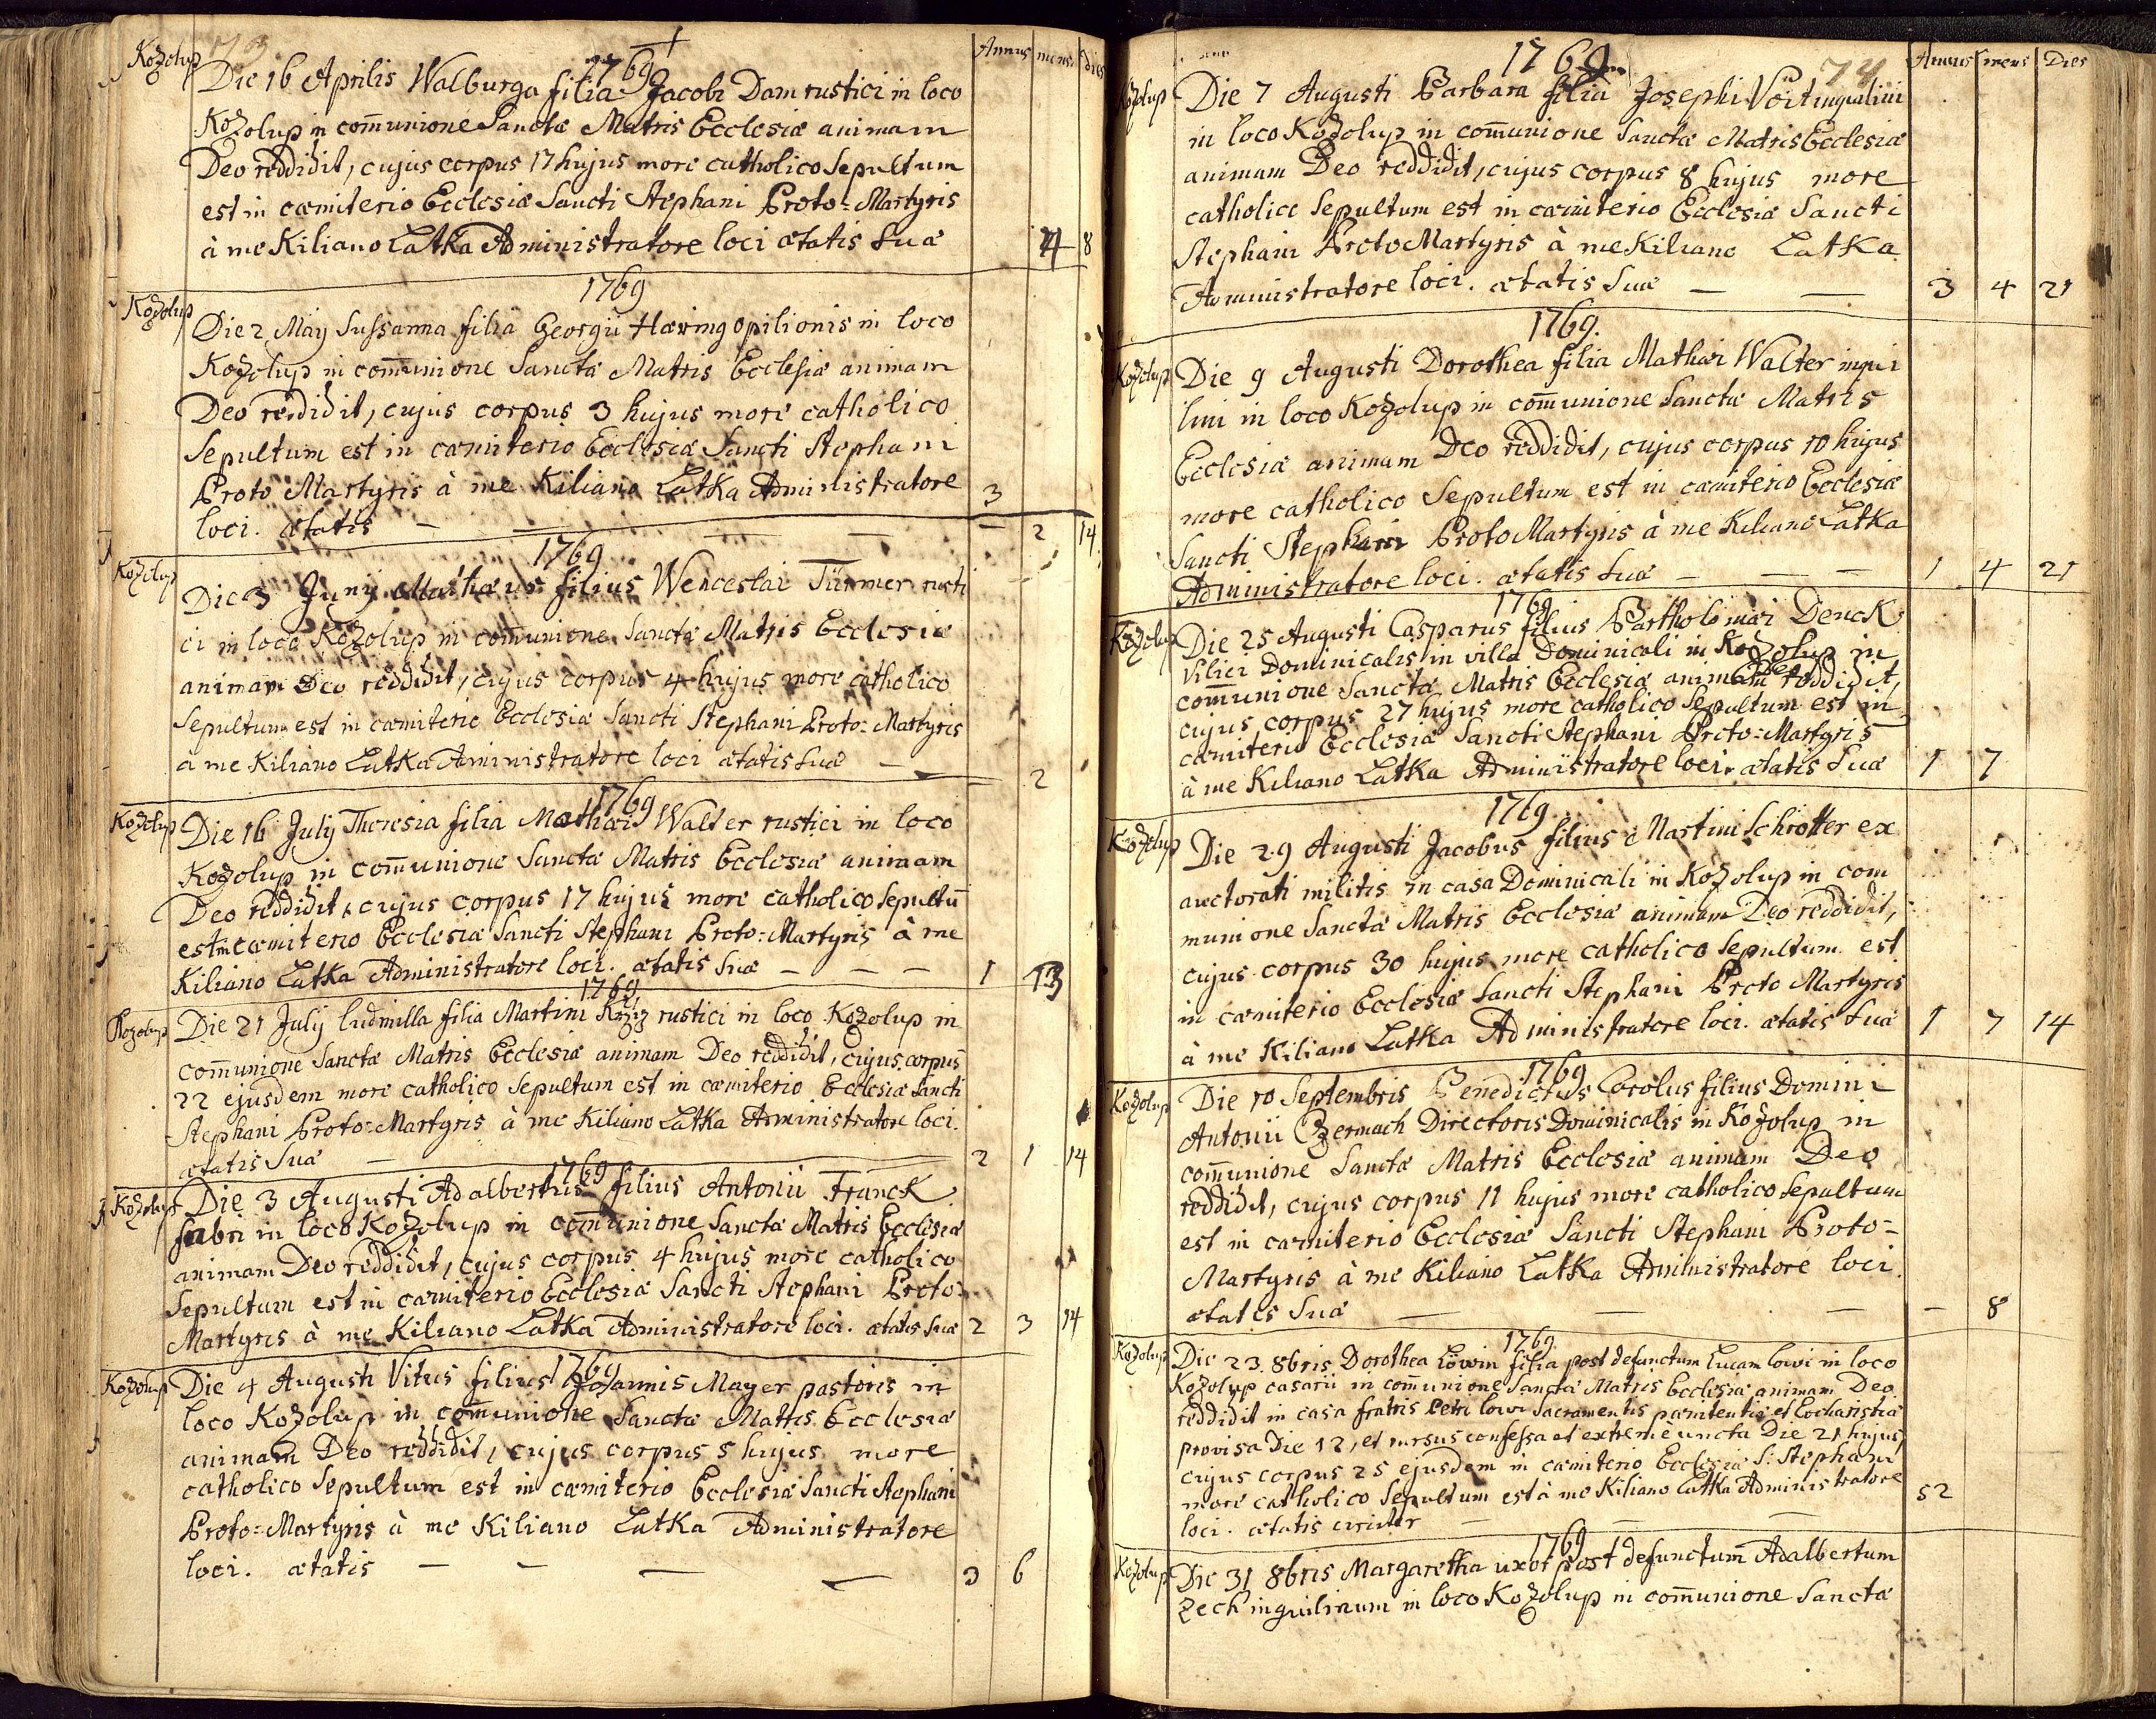 73
Annus mens. dies
Kozolup
1769
Die 16 Aprilis Walburga filia Jacobi Dam rustici in loco
Kozolup in com̄unione Sanctæ Matris Ecclesiæ animam
Deo reddidit, cujus corpus 17 hujus more catholico Sepultum
est in cæmiterio Ecclesiæ Sancti Stephani Proto=Martyris
à me Kiliano Latka Administratore loci ætatis Suæ 4 8
1769
Kozolup
Die 2 Maÿ Sussanna filia Georgii Hæring opilionis in loco
Kozolup in com̄unione Sanctæ Matris Ecclesiæ animam
Deo reddidit, cujus corpus 3 hujus more catholico
Sepultum est in cæmiterio Ecclesiæ Sancti Stephani
Proto Martyris à me Kiliano Latka Administratore 3
loci. ætatis — — — — — 2 14
1769
Kozolup
Die 3 Junÿ Mathæus filius Wenceslai Türmer rusti
ci in loco Kozolup in com̄unione Sanctæ Matris Ecclesiæ
animam Deo reddidit, cujus corpus 4 hujus more catholico
Sepultum est in cæmiterio Ecclesiæ Sancti Stephani Proto=Martyris
à me Kiliano Latka Administratore loci ætatis Suæ — — 2
1769
Kozolup
Die 16 Julÿ Theresia filia Mathæi Walter rustici in loco
Kozolup in com̄unione Sanctæ Matris Ecclesiæ animam
Deo reddidit, cujus corpus 17 hujus more catholico Sepultū
est in cæmiterio Ecclesiæ Sancti Stephani Proto=Martyris à me
Kiliano Latka Administratore loci. ætatis Suæ — — — 1 13
1769
Kozolup
Die 21 Julÿ ludmilla filia Martini rustici in loco Kozolup in
com̄unione Sanctæ Matris Ecclesiæ animam Deo reddidit, cujus corpus
22 ejusdem more catholico Sepultum est in cæmiterio Ecclesiæ Sancti
Stephani Proto=Martyris à me Kiliano Latka Administratore loci.
ætatis Suæ — — 2 1 14
1769
Kozolup
Die 3 Augusti Adalbertus filius Antonii Franck
fabri in loco Kozolup in com̄unione Sanctæ Matris Ecclesiæ
animam Deo reddidit, cujus corpus 4 hujus more catholico
Sepultum est in cæmiterio Ecclesiæ Sancti Stephani Proto=
Martyris à me Kiliano Latka Administratore loci. ætatis Suæ 2 3 14
1769
Kozolup
Die 4 Augusti Vitus filius Joannis Mayer pastoris in
loco Kozolup in com̄unione Sanctæ Matris Ecclesiæ
animam Deo reddidit, cujus corpus 5 hujus more
catholico Sepultum est in cæmiterio Ecclesiæ Sancti Stephani
Proto=Martyris à me Kiliano Latka Administratore
loci. ætatis — — — — 3 6
74
Annus mens Dies
1769
Kozolup
Die 7 Augusti Barbara filia Josephi Voit inquilini
in loco Kozolup in com̄unione Sanctæ Matris Ecclesiæ
animam Deo reddidit, cujus corpus 8 hujus more
catholico Sepultum est in cæmiterio Ecclesiæ Sancti
Stephani Proto Martyris à me Kiliano Latka
Administratore loci. ætatis Suæ — — 3 4 21
1769.
Kozolup
Die 9 Augusti Dorothea filia Mathæi Walter inqui
lini in loco Kozolup in com̄unione Sanctæ Matris
Ecclesiæ animam Deo reddidit, cujus corpus 10 hujus
more catholico Sepultum est in cæmiterio Ecclesiæ
Sancti Stephani Proto Martyris à me Kiliano Latka
Administratore loci. ætatis Suæ — — — 1 4 21
1769
Kozolup
Die 25 Augusti Casparus filius Bartholomæi Denck
vilici Dominicalis in villa Dominicali in Kozolup in
com̄unione Sanctæ Matris Ecclesiæ animam Deo reddidit,
cujus corpus 27 hujus more catholico Sepultum est in
cæmiterio Ecclesiæ Sancti Stephani Proto=Martyris
à me Kiliano Latka Administratore loci. ætatis Suæ 1 7
1769
Kozolup
Die 29 Augusti Jacobus filius Martini Schrotter ex
auctorati militis in casa Dominicali in Kozolup in com
munione Sanctæ Matris Ecclesiæ animam Deo reddidit,
cujus corpus 30 hujus more catholico Sepultum est
in cæmiterio Ecclesiæ Sancti Stephani Proto Martyris
à me Kiliano Latka Administratore loci. ætatis Suæ 1 7 14
1769
Kozolup
Die 10 Septembris Benedictus Carolus filius Domini
Antonii Czermach Directoris Dominicalis in Kozolup in
com̄unione Sanctæ Matris Ecclesiæ animam Deo
reddidit, cujus corpus 11 hujus more catholico Sepultum
est in cæmiterio Ecclesiæ Sancti Stephani Proto=
Martyris à me Kiliano Latka Administratore loci.
ætatis Suæ — — — — 8
1769
Kozolup
Die 23 8bris Dorothea Löwin filia post defunctum Lucam lowi in loco
Kozolup casarii in com̄unione Sanctæ Matris Ecclesiæ animam Deo
reddidit in casa fratris Petri lowi Sacramentis pænitentiæ et Eucharistiæ
provisa Die 12, et rursus confessa et extreme uncta Die 21 hujus,
cujus corpus 25 ejusdem in cæmiterio Ecclesiæ S: Stephani
more catholico Sepultum est à me Kiliano Latka Administratore
loci. ætatis circiter — — — 52
1769
Kozolup
Die 31 8bris Margaretha uxor post defunctum Adalbertum
Zech inquilinum in loco Kozolup in com̄unione Sanctæ